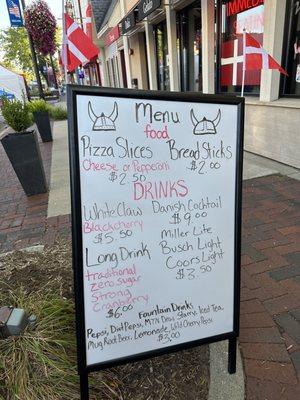 Menu
food
Pizza Slices
Cheese or Pepperoni
$2.50
Bread Sticks
$2.00
DRINKS
White Claw
Blackcherry
$5.50
Danish Cocktail
$9.00
Miller Lite
Busch Light
Coors Light
$3.50
Long Drink
traditional
Zero Sugar
Strong
Cranberry
$6.00
Fountain Drinks
Pepsi, Diet Pepsi, MTN Dew, Starry, Iced Tea,
Mug Root Beer, Lemonade, Wild Cherry Pepsi
$3.00